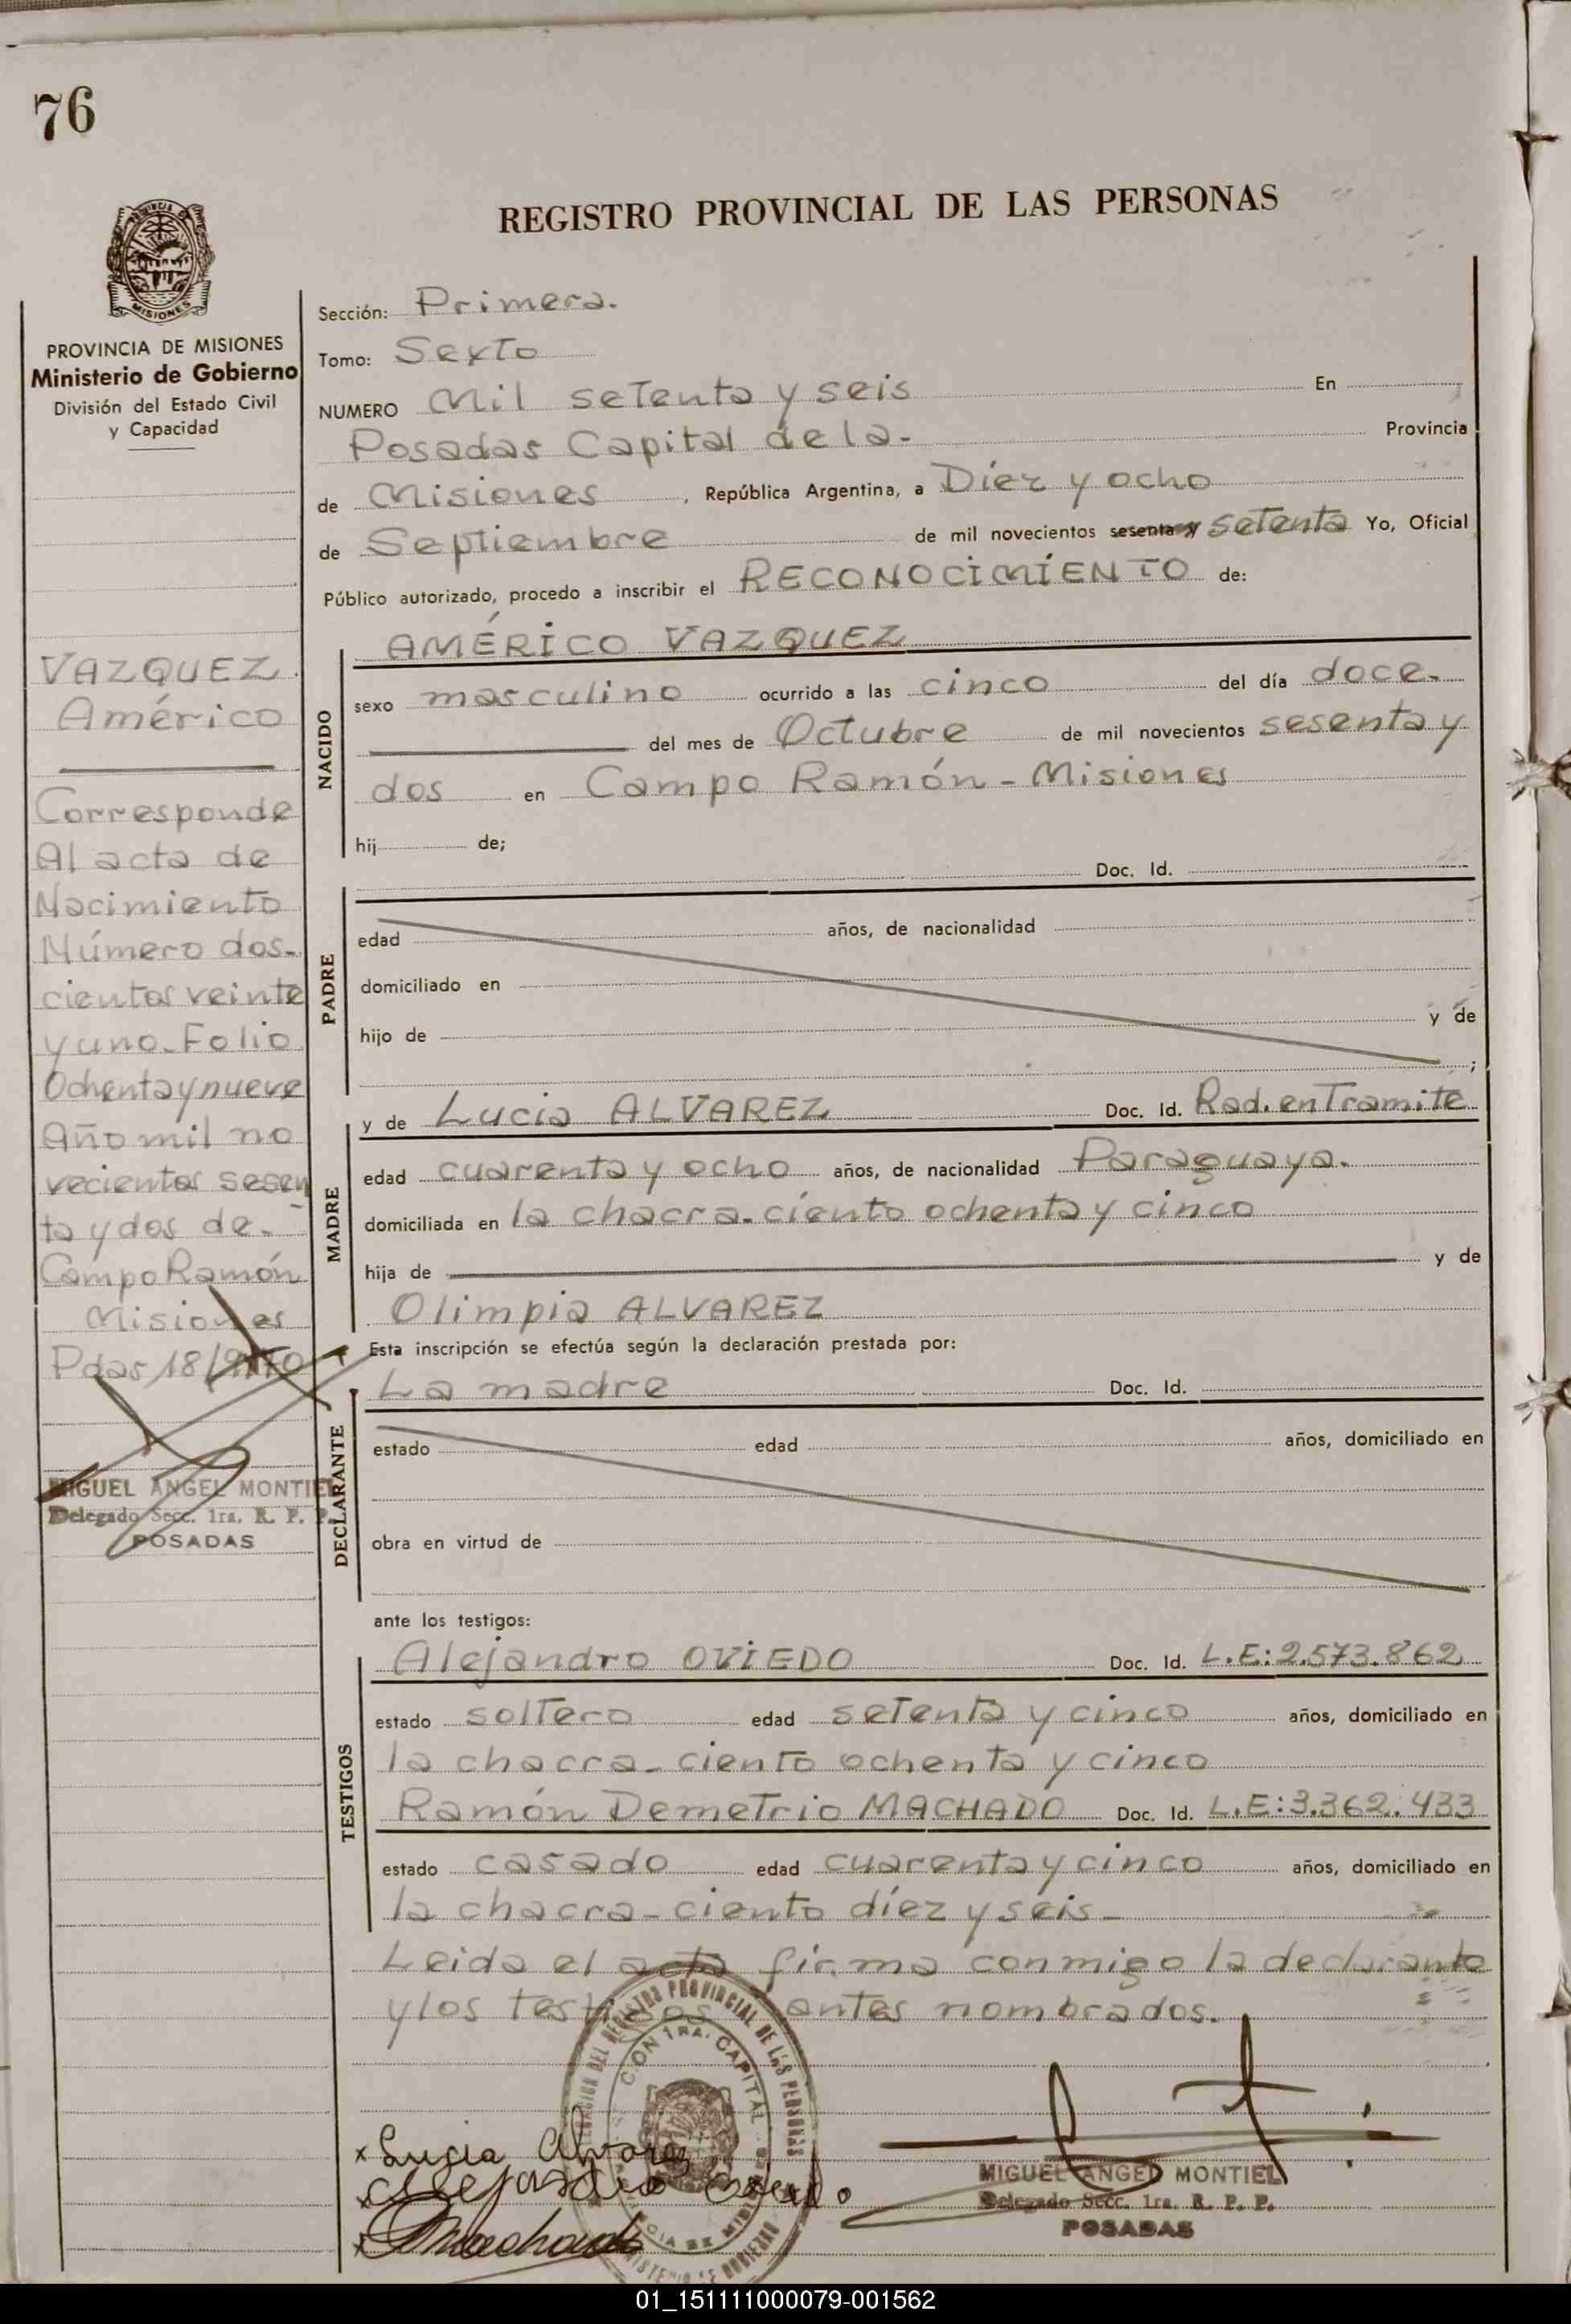 76
REGISTRO PROVINCIAL DE LAS PERSONAS
PROVINCIA DE MISIONES
Ministerio de Gobierno
División del Estado Civil
y Capacidad
VAZQUEZ
Américo
Corresponde
Al acta de
Nacimiento
Número dos-
cientos veinte
y uno. Folio
Ochenta y nueve
Año mil no
vecientos sesen
ta y dos de.-
Campo Ramón
Misiones
Pdas 18/9/70
MIGUEL ANGEL MONTIEL
Delegado Secc. 1ra. R. P. P.
POSADAS
Sección: Primera.
Tomo: Sexto
NUMERO Mil setenta y seis En
Posadas Capital de la- Provincia
de Misiones, República Argentina, a Diez y ocho
de Septiembre de mil novecientos sesenta y setenta Yo, Oficial
Público autorizado, procedo a inscribir el RECONOCIMIENTO de:
NACIDO
AMÉRICO VAZQUEZ
sexo masculino ocurrido a las cinco del día doce.
del mes de Octubre de mil novecientos sesenta y
dos en Campo Ramón - Misiones
hij de;
Doc. Id.
PADRE
edad años, de nacionalidad
domiciliado en
hijo de y de
;
y de Lucia ALVAREZ Doc. Id. Rad. en Tramite
MADRE
edad cuarenta y ocho años, de nacionalidad Paraguaya.
domiciliada en la chacra. ciento ochenta y cinco
hija de y de
Olimpia ALVAREZ
Esta inscripción se efectúa según la declaración prestada por:
La madre Doc. Id.
DECLARANTE
estado edad años, domiciliado en
obra en virtud de
ante los testigos:
TESTIGOS
Alejandro OVIEDO Doc. Id. L.E: 2.573.862
estado soltero edad setenta y cinco años, domiciliado en
la chacra - ciento ochenta y cinco
Ramón Demetrio MACHADO Doc. Id. L.E: 3.362.433
estado casado edad cuarenta y cinco años, domiciliado en
la chacra - ciento díez y séis -
Leida el acta firma conmigo la declarante
y los testigos antes nombrados.
x Lucia Alvarez
x Alejandro Oviedo
x Machado
MIGUEL ANGEL MONTIEL
Delegado Secc. 1ra. R. P. P.
POSADAS
01_151111000079-001562